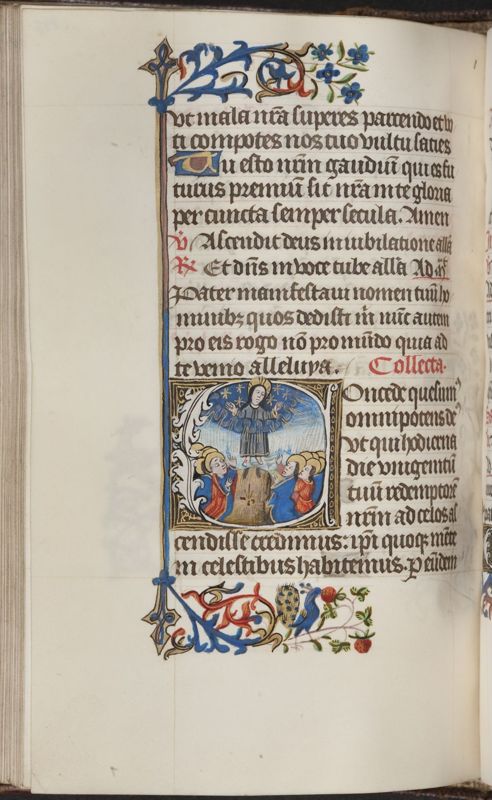 Ut mala nr̄a superes parcendo et vo
ti compotes nos tuo vultu saties
Tu esto nr̄m gaudiū qui es fu
turus premiū sit nr̄a in te gloria
per cuncta semper secula. Amen
V̄ Ascendit deus in iubilatione all̄a
R̄ Et dn̄s in voce tube all̄a Ad m̄
Pater manifestaui nomen tuū ho
minibꝫ quos dedisti m̄ nūc autem
pro eis rogo nō pro mūdo quia ad
te venio alleluya. Collecta.
Oncede quesumꝰ
omnipotens de᷒
Vt qui hodierna
die vnigenitū
tuū redemptorē
nr̄m ad celos as
cendisse credimus: ip̄i quoqꝫ mēte
in celestibus habitemus. P eūdem